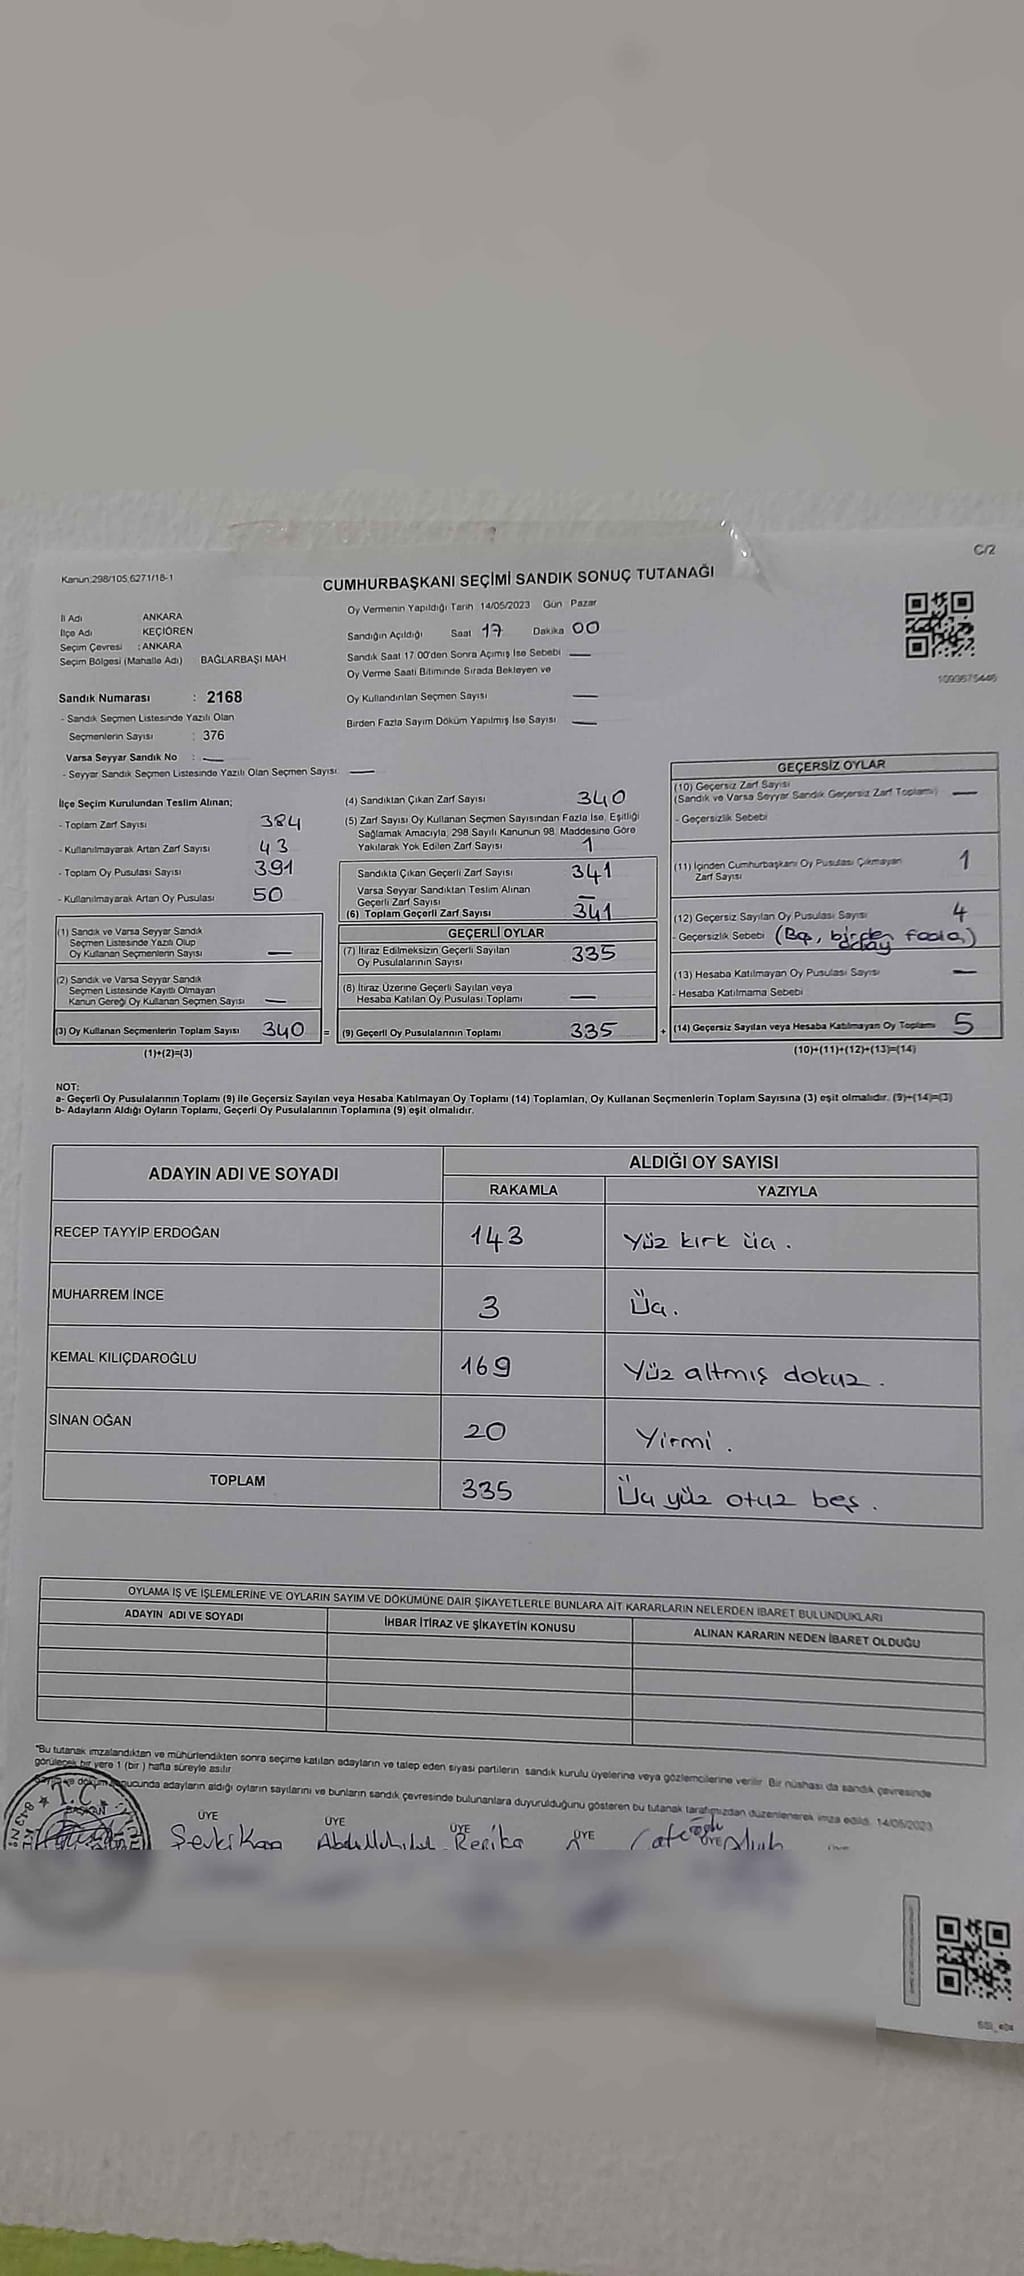 C/2
Kanun:298/105,6271/18-1
CUMHURBAŞKANI SEÇİMİ SANDIK SONUÇ TUTANAĞI
İl Adı ANKARA
İlçe Adı KEÇİÖREN
Seçim Çevresi : ANKARA
Seçim Bölgesi (Mahalle Adı) BAĞLARBAŞI MAH
Sandık Numarası : 2168
- Sandık Seçmen Listesinde Yazılı Olan
Seçmenlerin Sayısı : 376
Varsa Seyyar Sandık No : —
- Seyyar Sandık Seçmen Listesinde Yazılı Olan Seçmen Sayısı —
Oy Vermenin Yapıldığı Tarih 14/05/2023 Gün Pazar
Sandığın Açıldığı Saat 17 Dakika 00
Sandık Saat 17:00'den Sonra Açımış İse Sebebi —
Oy Verme Saati Bitiminde Sırada Bekleyen ve
Oy Kullandırılan Seçmen Sayısı —
Birden Fazla Sayım Döküm Yapılmış İse Sayısı —
1093675446
İlçe Seçim Kurulundan Teslim Alınan;
- Toplam Zarf Sayısı 384
- Kullanılmayarak Artan Zarf Sayısı 43
- Toplam Oy Pusulası Sayısı 391
- Kullanılmayarak Artan Oy Pusulası 50
(1) Sandık ve Varsa Seyyar Sandık
Seçmen Listesinde Yazılı Olup
Oy Kullanan Seçmenlerin Sayısı —
(2) Sandık ve Varsa Seyyar Sandık
Seçmen Listesinde Kayıtlı Olmayan
Kanun Gereği Oy Kullanan Seçmen Sayısı —
(3) Oy Kullanan Seçmenlerin Toplam Sayısı 340 =
(1)+(2)=(3)
(4) Sandıktan Çıkan Zarf Sayısı 340
(5) Zarf Sayısı Oy Kullanan Seçmen Sayısından Fazla İse, Eşitliği
Sağlamak Amacıyla, 298 Sayılı Kanunun 98. Maddesine Göre
Yakılarak Yok Edilen Zarf Sayısı 1
Sandıkta Çıkan Geçerli Zarf Sayısı 341
Varsa Seyyar Sandıktan Teslim Alınan
Geçerli Zarf Sayısı —
(6) Toplam Geçerli Zarf Sayısı 341
GEÇERLİ OYLAR
(7) İtiraz Edilmeksizin Geçerli Sayılan
Oy Pusulalarının Sayısı 335
(8) İtiraz Üzerine Geçerli Sayılan veya
Hesaba Katılan Oy Pusulası Toplamı —
(9) Geçerli Oy Pusulalarının Toplamı 335 +
GEÇERSİZ OYLAR
(10) Geçersiz Zarf Sayısı
(Sandık ve Varsa Seyyar Sandık Geçersiz Zarf Toplamı) —
- Geçersizlik Sebebi
(11) İçinden Cumhurbaşkanı Oy Pusulası Çıkmayan
Zarf Sayısı 1
(12) Geçersiz Sayılan Oy Pusulası Sayısı 4
- Geçersizlik Sebebi (Boş, birden fazla aday)
(13) Hesaba Katılmayan Oy Pusulası Sayısı —
- Hesaba Katılmama Sebebi
(14) Geçersiz Sayılan veya Hesaba Katılmayan Oy Toplamı 5
(10)+(11)+(12)+(13)=(14)
NOT:
a- Geçerli Oy Pusulalarının Toplamı (9) ile Geçersiz Sayılan veya Hesaba Katılmayan Oy Toplamı (14) Toplamları, Oy Kullanan Seçmenlerin Toplam Sayısına (3) eşit olmalıdır. (9)+(14)=(3)
b- Adayların Aldığı Oyların Toplamı, Geçerli Oy Pusulalarının Toplamına (9) eşit olmalıdır.
ADAYIN ADI VE SOYADI ALDIĞI OY SAYISI
RAKAMLA YAZIYLA
RECEP TAYYİP ERDOĞAN 143 Yüz kırk üç.
MUHARREM İNCE 3 Üç.
KEMAL KILIÇDAROĞLU 169 Yüz altmış dokuz.
SİNAN OĞAN 20 Yirmi.
TOPLAM 335 Üç yüz otuz beş.
OYLAMA İŞ VE İŞLEMLERİNE VE OYLARIN SAYIM VE DÖKÜMÜNE DAİR ŞİKAYETLERLE BUNLARA AİT KARARLARIN NELERDEN İBARET BULUNDUKLARI
ADAYIN ADI VE SOYADI İHBAR İTİRAZ VE ŞİKAYETİN KONUSU ALINAN KARARIN NEDEN İBARET OLDUĞU
"Bu tutanak imzalandıktan ve mühürlendikten sonra seçime katılan adayların ve talep eden siyasi partilerin, sandık kurulu üyelerine veya gözlemcilerine verilir. Bir nüshası da sandık çevresinde
görülecek bir yere 1 (bir) hafta süreyle asılır.
Sayım ve döküm sonucunda adayların aldığı oyların sayılarını ve bunların sandık çevresinde bulunanlara duyurulduğunu gösteren bu tutanak tarafımızdan düzenlenerek imza edildi. 14/05/2023
T.C.
BAŞKAN ÜYE ÜYE ÜYE ÜYE ÜYE